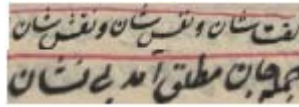 گفت شان و نفس شان و نقش شان
جمله جان مطلق آمد بی نشان